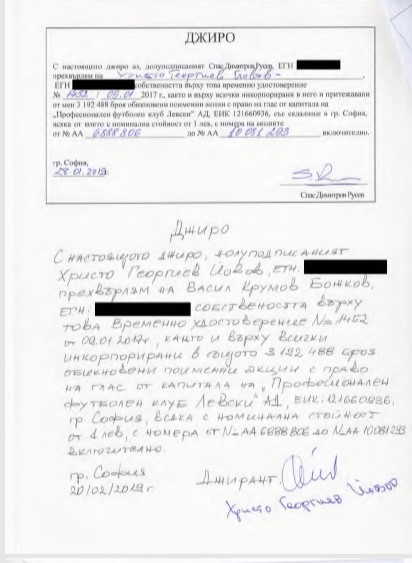 ДЖИРО
С настоящото джиро аз, долуподписаният Спас Димитров Русев, ЕГН
прехвърлям на Христо Георгиев Йовов -
ЕГН собствеността върху това временно удостоверение
№ 1452 / 09.01 2017 г., както и върху всички инкорпорирани в него и притежавани
от мен 3 192 488 броя обикновени поименни акции с право на глас от капитала на
„Професионален футболен клуб Левски" АД, ЕИК 121660936, със седалище в гр. София,
всяка от които с номинална стойност от 1 лев, с номера на акциите
от № АА 6888806 до № АА 10081293 включително.
гр. София,
28.01.2019
Спас Димитров Русев
Джиро
С настоящото джиро, долуподписаният
Христо Георгиев Йовов, ЕГН.
прехвърлям на Васил Крумов Божков,
ЕГН. собствеността върху
това временно удостоверение №1452
от 09.01.2017г., както и върху всички
инкорпорирани в същото 3 192 488 броя
обикновени поименни акции с право
на глас от капитала на „Професионален
футболен клуб Левски" АД, ЕИК: 121660936,
гр. София, всяка с номинална стойност
от 1 лев, с номера от №АА 6888806 до №АА 10081293
включително.
гр. София
20/02/2019г.
Джирант:
Христо Георгиев Йовов